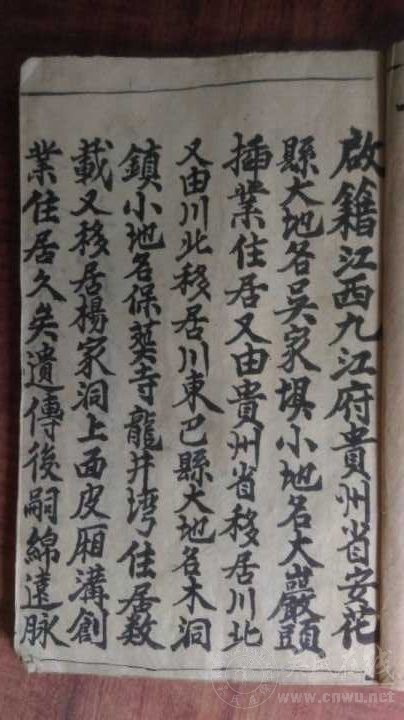 啟籍江西九江府貴州省安花
縣大地各吴家垻小地名大巖頭
插業住居又由貴州省移居川北
又由川北移居川東巴縣大地名木洞
鎮小地名保葜寺龍井湾住居数
載又移居楊家洞上面皮厢溝創
業住居久矣遺傳後嗣綿遠脉
www.cnwu.net